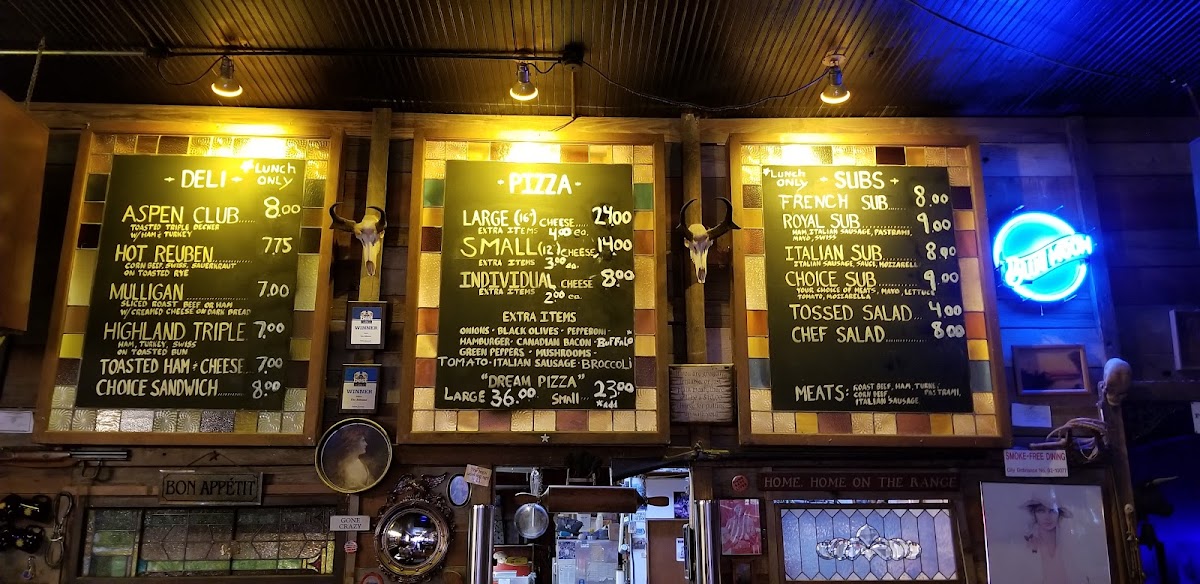 DELI
*LUNCH
ONLY
ASPEN CLUB...... 8.00
TOASTED TRIPLE DECKER
W/HAM & TURKEY
HOT REUBEN........ 7.75
CORN BEEF, SWISS, SAUERKRAUT
ON TOASTED RYE
MULLIGAN............ 7.00
SLICED ROAST BEEF OR HAM
W/CREAMED CHEESE ON DARK BREAD
HIGHLAND TRIPLE. 7.00
HAM, TURKEY, SWISS
ON TOASTED BUN
TOASTED HAM & CHEESE.. 7.00
CHOICE SANDWICH......... 8.00
WINNER
WINNER
- PIZZA -
LARGE (16") CHEESE.. 24.00
EXTRA ITEMS 4.00 ea.
SMALL (12") CHEESE. 14.00
EXTRA ITEMS 3.00 ea.
INDIVIDUAL CHEESE 8.00
EXTRA ITEMS 2.00 ea.
EXTRA ITEMS
ONIONS · BLACK OLIVES · PEPPERONI ·
HAMBURGER · CANADIAN BACON · BUFFALO
GREEN PEPPERS · MUSHROOMS ·
TOMATO · ITALIAN SAUSAGE · BROCCOLI
"DREAM PIZZA"
LARGE 36.00 SMALL... 23.00
*add
*LUNCH
ONLY
- SUBS -
FRENCH SUB.... 8.00
ROYAL SUB....... 9.00
HAM, ITALIAN SAUSAGE, PASTRAMI,
MAYO, SWISS
ITALIAN SUB.... 8.00
ITALIAN SAUSAGE, SAUCE, MOZZARELLA
CHOICE SUB...... 9.00
YOUR CHOICE OF MEATS, MAYO, LETTUCE
TOMATO, MOZZARELLA
TOSSED SALAD... 4.00
CHEF SALAD...... 8.00
MEATS: ROAST BEEF, HAM, TURKEY,
CORN BEEF, PASTRAMI,
ITALIAN SAUSAGE
BLUE MOON
BON APPÉTIT
GONE
CRAZY
HOME, HOME ON THE RANGE
SMOKE-FREE DINING